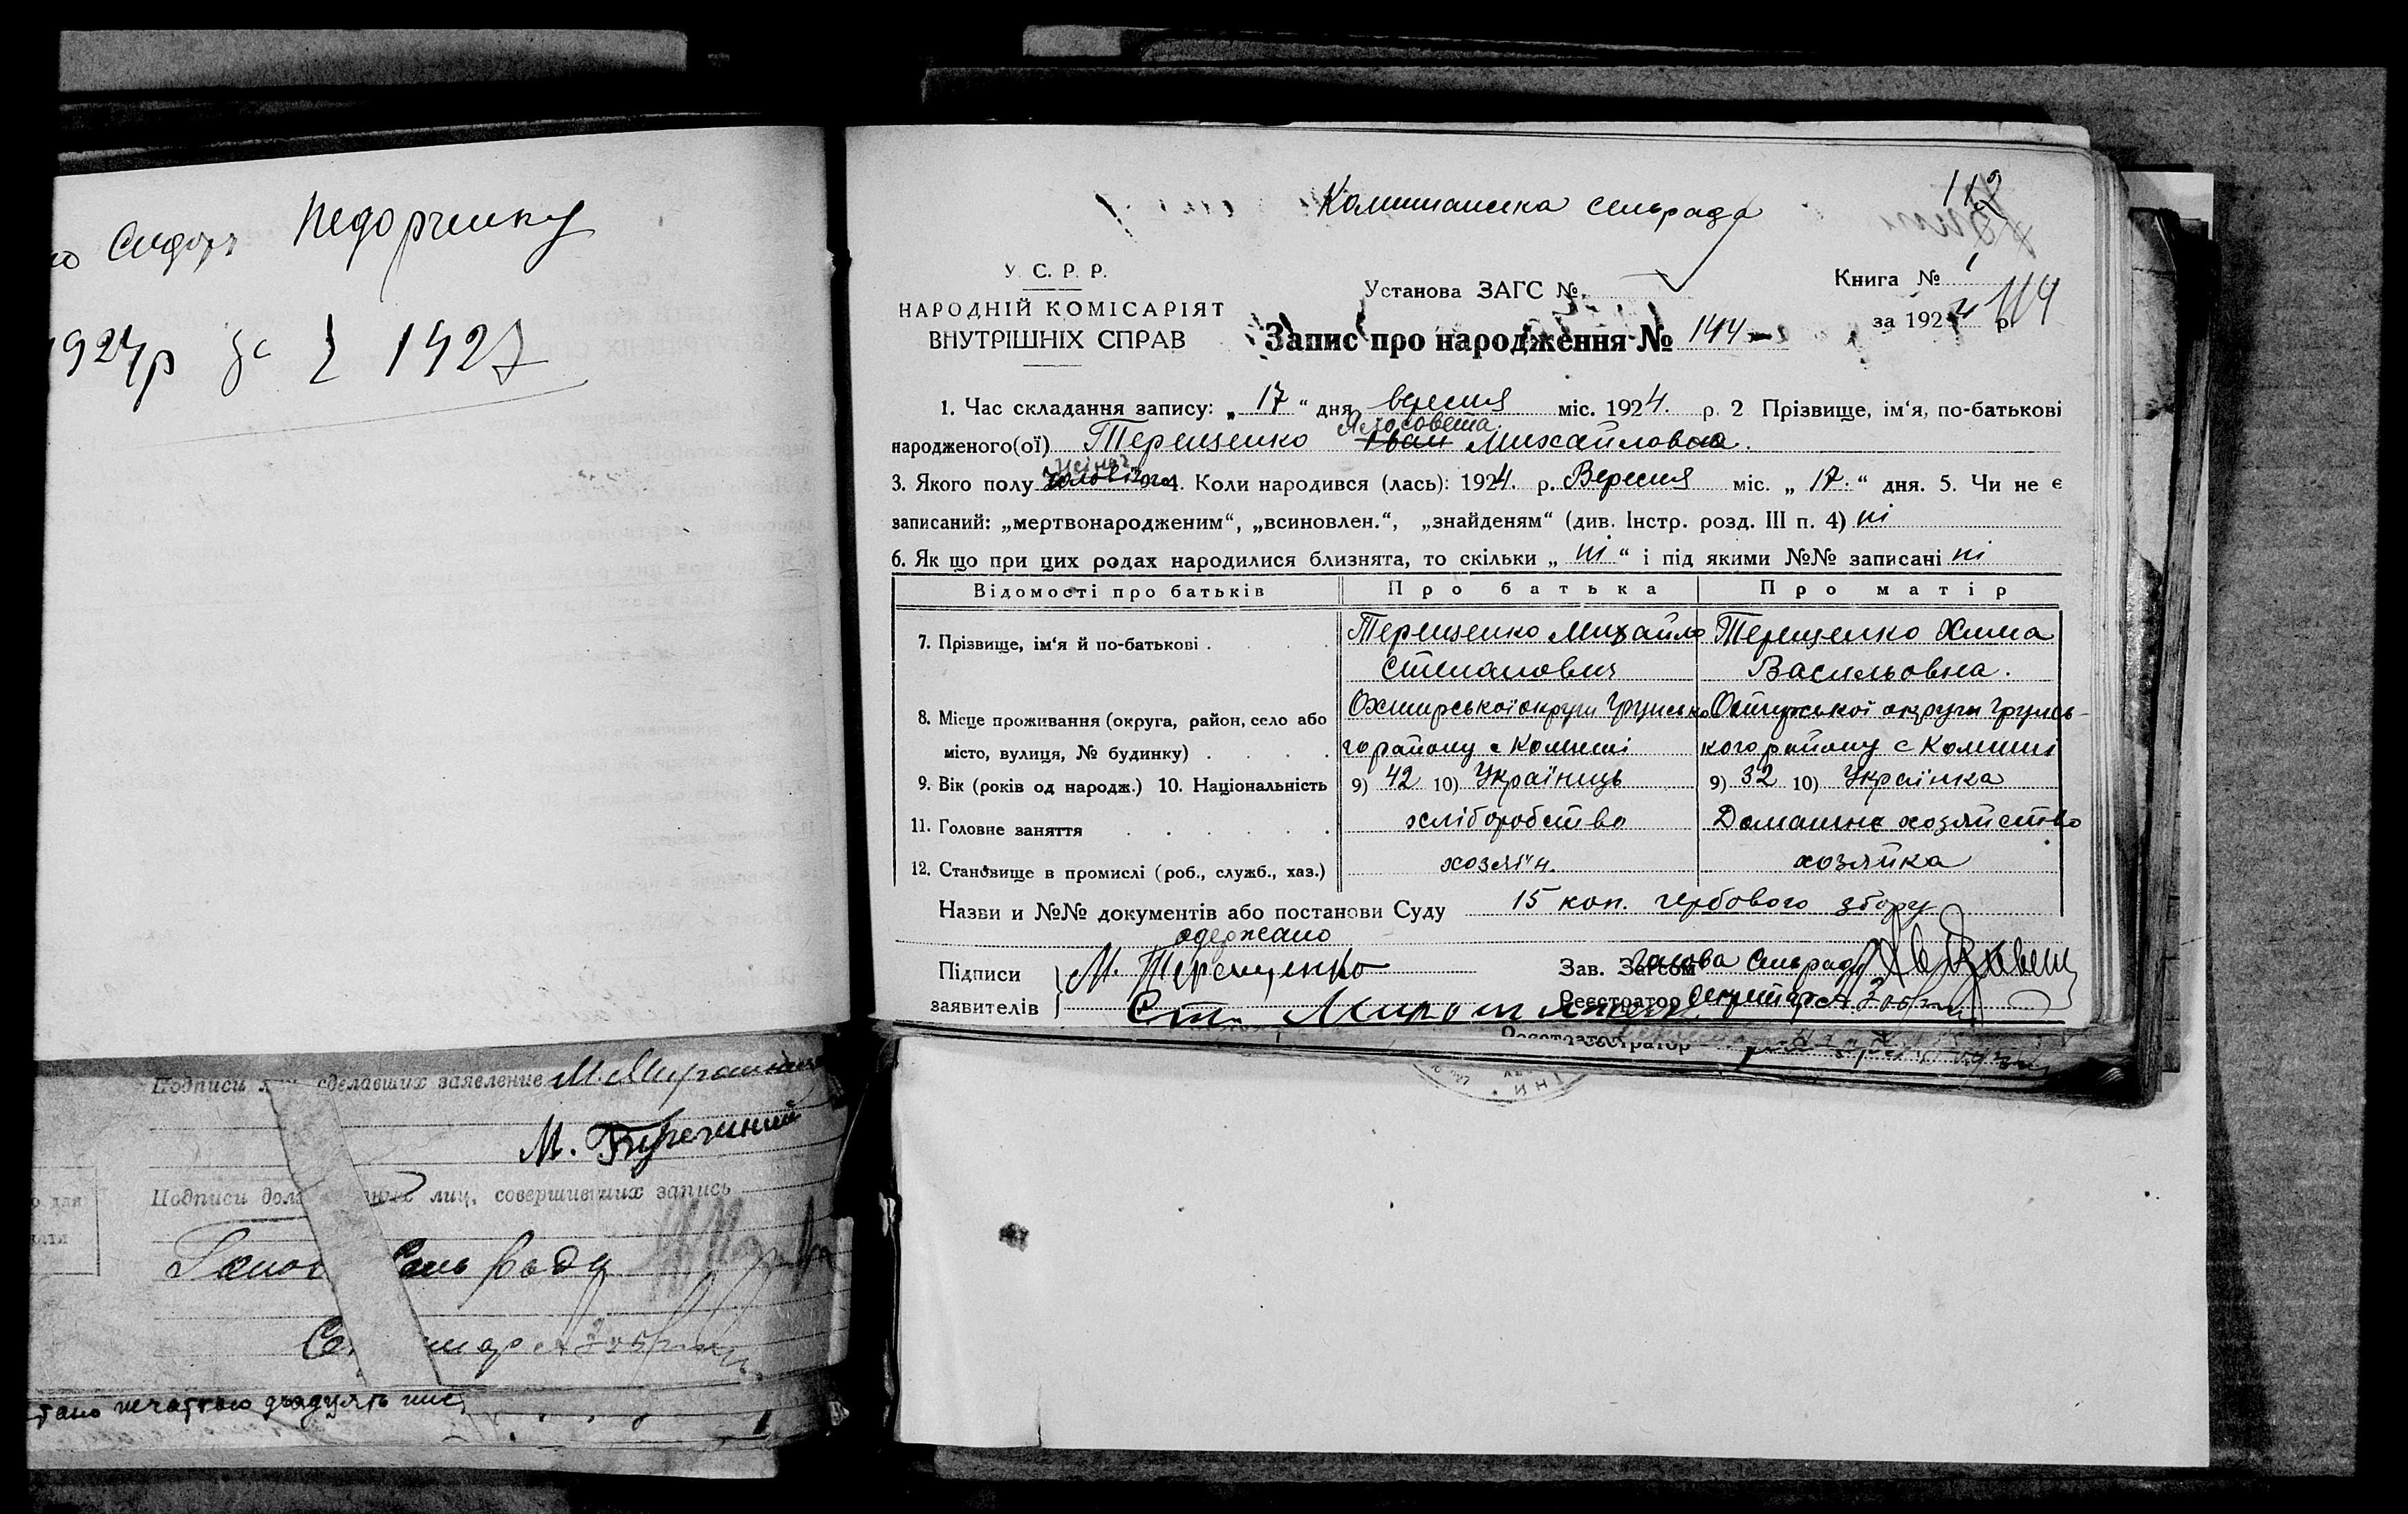 Сидор Недорчику
1924р за 1927
Подписи сделавших заявление М. Мирошник
М. Биречний
Подписи лиц, совершивших запись
Сель Ради
печаттаю двадцять
Комишанська сельрада
У. С. Р. Р.
НАРОДНІЙ КОМІСАРІЯТ
ВНУТРІШНІХ СПРАВ
Установа ЗАГС №
Книга № 1
за 1924 р. 114
Запис про народження № 144
1. Час складання запису: „ 17 “ дня вересня міс. 1924. р. 2 Прізвище, ім‘я, по-батькові
Ялосовета
народженого(ої) Терещенко Іван Михайловна.
жіноч
3. Якого полу чоловічого 4. Коли народився (лась): 1924. р. Вересня міс. „ 17. “ дня. 5. Чи не є
записаний: „мертвонародженим“, „всиновлен.“, „знайденям“ (див. Інстр. розд. III п. 4) ні
6. Як що при цих родах народилися близнята, то скільки „ ні “ і під якими №№ записані ні
Відомості про батьків Про батька Про матір
7. Прізвище, ім‘я й по-батькові . Терещенко Михайло Терещенко Хима
Степанович Васильовна.
8. Місце проживання (округа, район, село або Охтирської округи Грунсько Охтирської округи Грунсь-
місто, вулиця, № будинку) . го району с Комиші кого району с Комиші
9. Вік (років од народж.) 10. Національність 9) 42 10) Українець 9) 32 10) Українка
11. Головне заняття хліборобство Домашнє хозяйство
12. Становище в промислі (роб., служб., хаз.) хозяїн. хозяйка
Назви и №№ документів або постанови Суду 15 коп. гербового збору
одержано
Підписи М. Терещенко Зав. Загсом Голова Сельради
заявителів Ст. Мирошник Реєстратор Секретар
Реєстратор